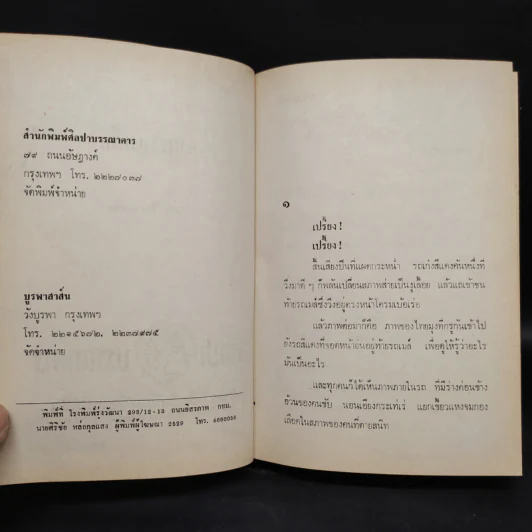 สำนักพิมพ์ศิลปาบรรณาคาร
๗๙ ถนนอัษฎางค์
กรุงเทพฯ โทร. ๒๒๒๗๐๓๗
จัดพิมพ์จำหน่าย
บูรพาสาส์น
วังบูรพา กรุงเทพฯ
โทร. ๒๒๑๕๖๗๒, ๒๒๓๗๙๗๕
จัดจำหน่าย
พิมพ์ที่ โรงพิมพ์รุ่งวัฒนา 299/12-13 ถนนอิสรภาพ กทม.
นายศิริชัย หล่อกุลแสง ผู้พิมพ์ผู้โฆษณา 2529 โทร.
๑
เปรี้ยง !
เปรี้ยง !
สิ้นเสียงปืนที่แผดกระหน่ำ รถเก๋งสีแดงคันหนึ่งที่
วิ่งมาดี ๆ ก็พลันเปลี่ยนสภาพส่ายเป็นงูเลื้อย แล้วแถเข้าชน
ท้ายรถเมล์ซึ่งวิ่งอยู่ตรงหน้าโครมเบ้อเร่อ
แล้วภาพต่อมาก็คือ ภาพของไทยมุงที่กรูกันเข้าไป
ยังรถสีแดงที่จอดหน้าย่นอยู่ท้ายรถเมล์ เพื่อดูให้รู้ว่าอะไร
มันเป็นอะไร
และทุกคนก็ได้เห็นภาพภายในรถ ที่มีร่างค่อนข้าง
อ้วนของคนขับ นอนเอียงกระเท่เร่ แยกเขี้ยวแหงจมกอง
เลือดในสภาพของคนที่ตายสนิท